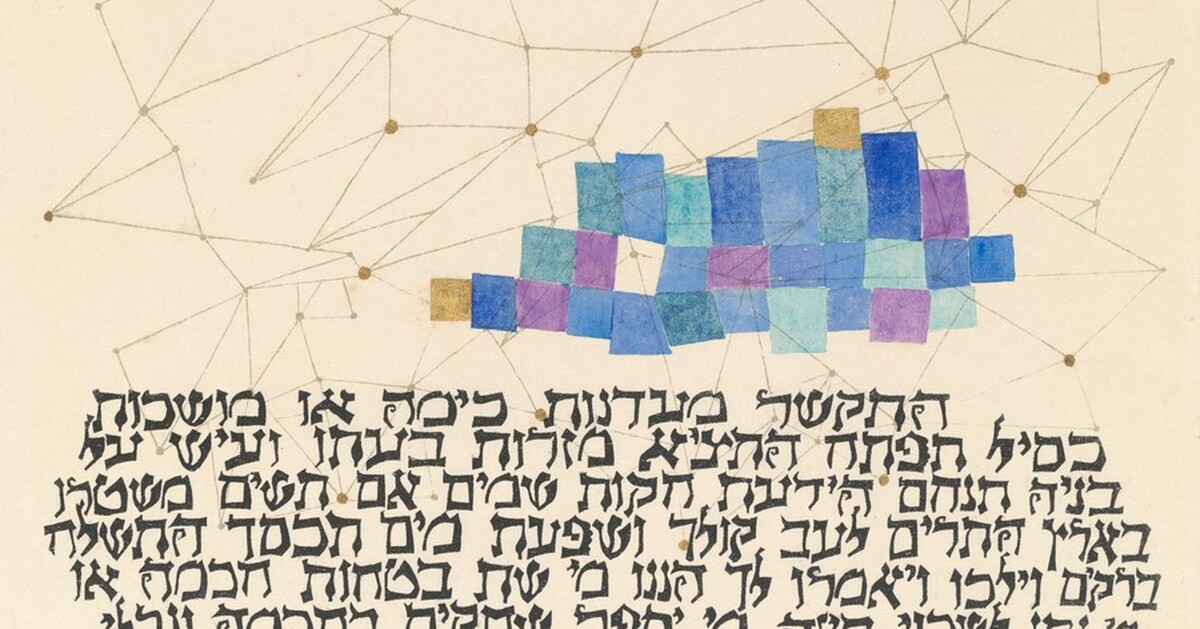 התקשר מעדנות כימה או מושכות
כסיל תפתח התציא מזרות בעתו ועיש על
בניה תנחם הידעת חקות שמים אם תשים משטרו
בארץ התרים לעב קולך ושפעת מים תכסך התשלח
ברקים וילכו ויאמרו לך הננו מי שת בטחות חכמה או
מי נתן לשכוי בינה מי יספר שחקים בחכמה ונבלי